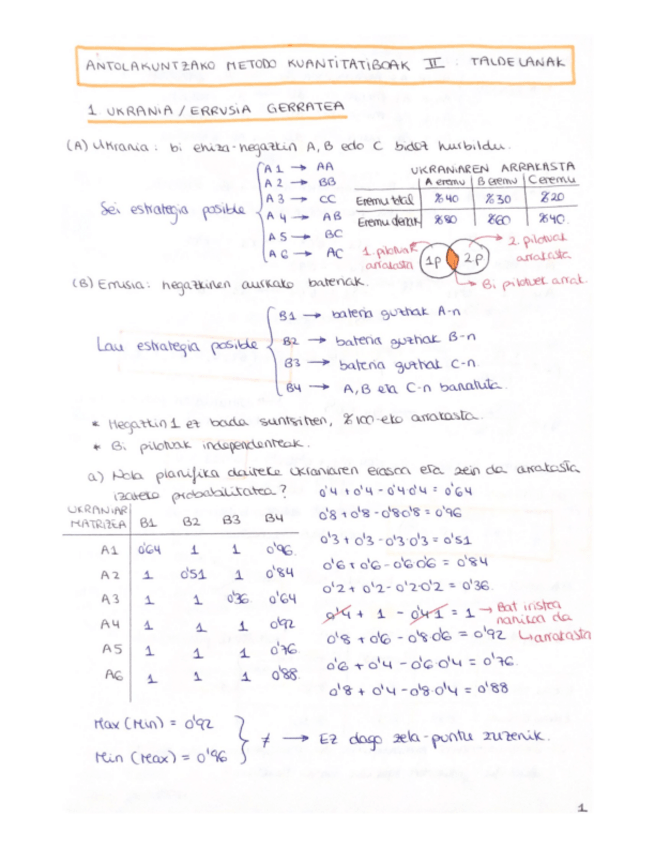 ANTOLAKUNTZAKO METODO KUANTITATIBOAK II : TALDE LANAK
1 UKRANIA / ERRUSIA GERRATEA
(A) Ukrania : bi ehiza-hegazkin A, B edo C bidez hurbildu.
Sei estrategia posible
A1 → AA
A2 → BB
A3 → CC
A4 → AB
A5 → BC
A6 → AC
UKRANIAREN ARRAKASTA
A eremu B eremu C eremu
Eremu total %40 %30 %20
Eremu denak %80 %60 %40
1. pilotuak arrakasta
1P 2P
2. pilotuak arrakasta
Bi pilotuek arrak.
(B) Errusia : hegazkinen aurkako bateriak.
Lau estrategia posible
B1 → bateria guztiak A-n
B2 → bateria guztiak B-n
B3 → bateria guztiak C-n.
B4 → A, B eta C-n banatuta.
* Hegazkin 1 ez bada suntsitzen, %100-eko arrakasta.
* Bi pilotuak independenteak.
a) Nola planifika daiteke Ukraniaren erasoa eta zein da arrakasta
izateko probabilitatea?
UKRANIAR
MATRIZEA B1 B2 B3 B4
A1 0'64 1 1 0'96
A2 1 0'51 1 0'84
A3 1 1 0'36 0'64
A4 1 1 1 0'92
A5 1 1 1 0'76
A6 1 1 1 0'88
0'4 + 0'4 - 0'4·0'4 = 0'64
0'8 + 0'8 - 0'8·0'8 = 0'96
0'3 + 0'3 - 0'3·0'3 = 0'51
0'6 + 0'6 - 0'6·0'6 = 0'84
0'2 + 0'2 - 0'2·0'2 = 0'36
0'4 + 1 - 0'4·1 = 1 → Bat iristea
nahikoa da
↳ arrakasta
0'8 + 0'6 - 0'8·0'6 = 0'92
0'6 + 0'4 - 0'6·0'4 = 0'76
0'8 + 0'4 - 0'8·0'4 = 0'88
Max (Min) = 0'92
Min (Max) = 0'96
≠ → Ez dago zela-puntu zuzenik.
1